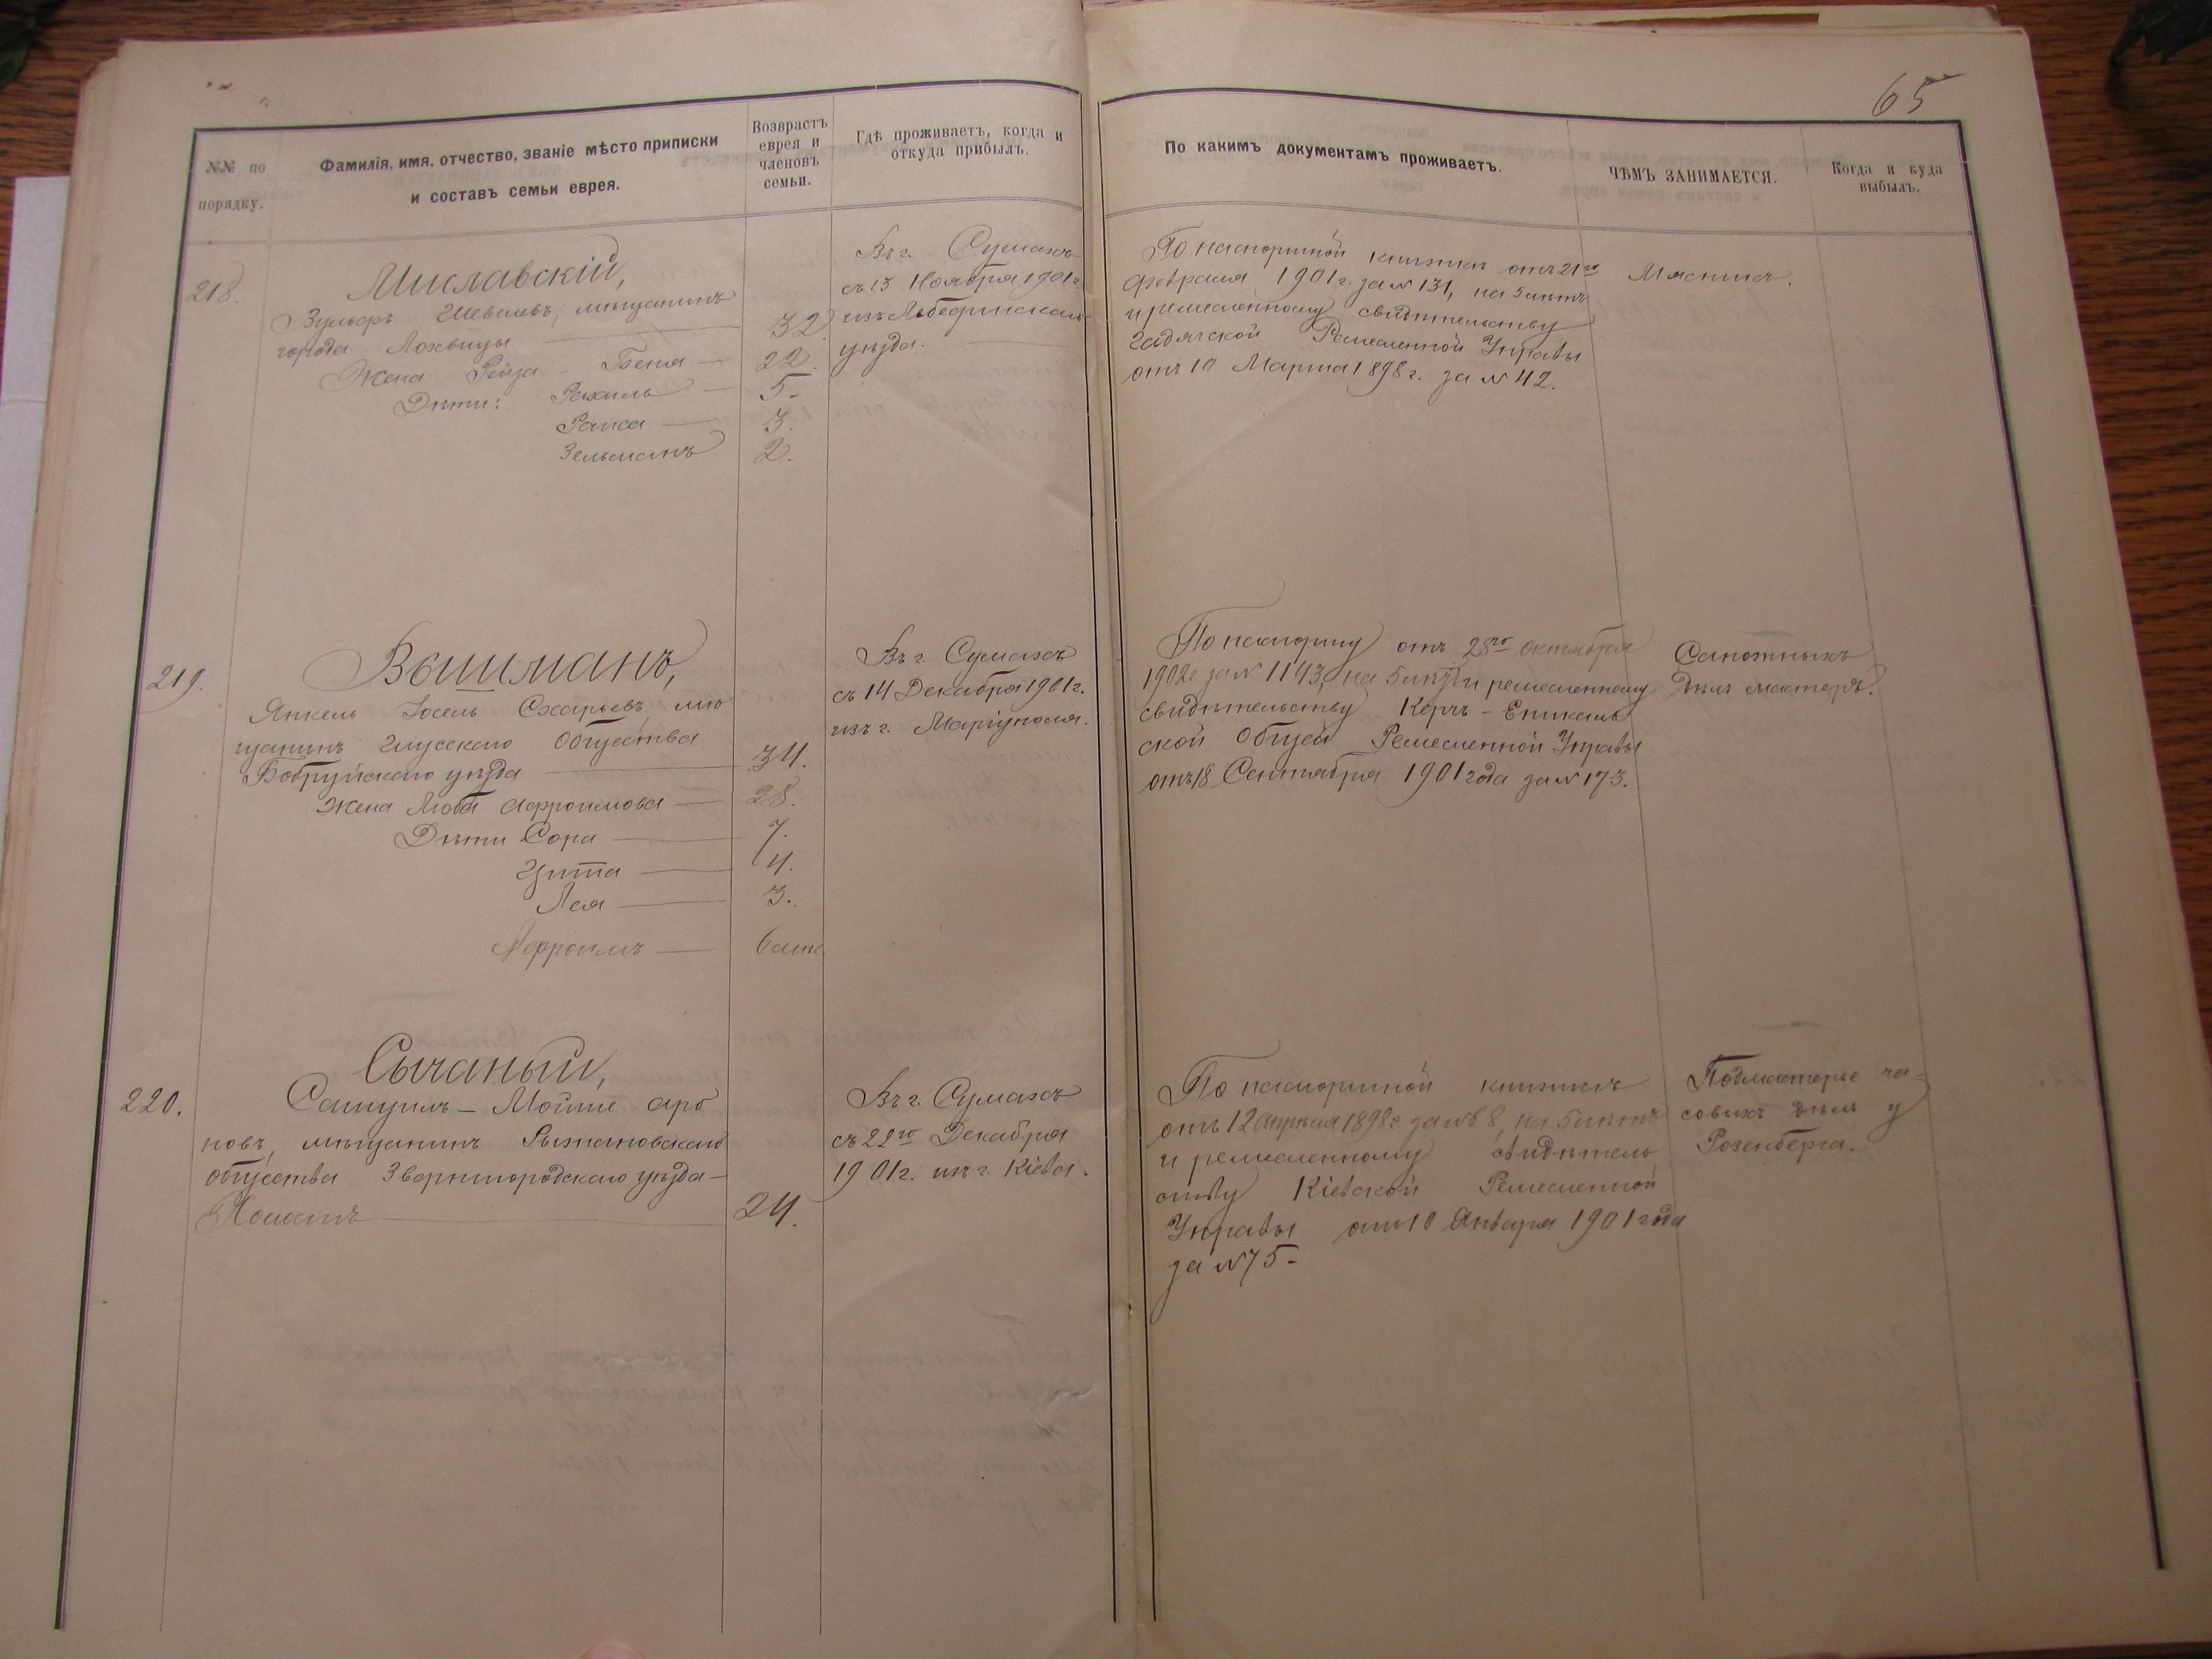 65
№№ по порядку.
Фамилія, имя, отчество, званіе мѣсто приписки
и составъ семьи еврея.
Возрастъ
еврея и
членовъ
семьи.
Гдѣ проживаетъ, когда и
откуда прибылъ.
По какимъ документамъ проживаетъ.
ЧѢМЪ ЗАНИМАЕТСЯ.
Когда и куда
выбылъ.
218.
Миславскій,
Шевелевъ, мѣщанинъ
города Лохвицы 32
Жена Рейза - Беня 22.
Дѣти: Рахиль 5-
Раиса 3.
Зельманъ 2.
Въ г. Сумахъ
съ 13 Ноября 1901 г.
изъ Лебединскаго
уѣзда.
По паспортной книжкѣ отъ 21го
Февраля 1901 г. за № 131, на 5 лѣтъ
и ремесленному свидѣтельству
Гадячской Ремесленной Управы
отъ 10 Марта 1898 г. за № 42.
Мясникъ.
219.
Вайшманъ,
Янкель Іосель Сахарьевъ, мѣ
щанинъ Глусскаго Общества
Бобруйскаго уѣзда 34.
Жена Люба Афроимова 28.
Дѣти Сора 7.
Цита 4.
Лея 3.
Афроимъ
Въ г. Сумахъ
съ 14 Декабря 1901 г.
изъ г. Маріуполя.
По паспорту отъ 28го октября
1902 г за № 1143, на 5 лѣтъ и ремесленному
свидѣтельству Керчь-Еникаль
ской Общей Ремесленной Управы
отъ 18 Сентября 1901 года за № 173.
Сапожныхъ
дѣлъ мастеръ.
220.
Сычаный,
Самуилъ - Мойше аро
новъ, мѣщанинъ Рыжановскаго
общества Звернигородскаго уѣзда -
Холостъ 24.
Въ г. Сумахъ
съ 22го Декабря
1901 г. изъ г. Кіева.
По паспортной книжкѣ
отъ 12 апрѣля 1898 г за № 68, на 5 лѣтъ
и ремесленному свидѣтель
ству Кіевской Ремесленной
Управы отъ 10 Января 1901 года
за № 75-
Подмастерье ча-
совыхъ дѣлъ у
Розенберга.